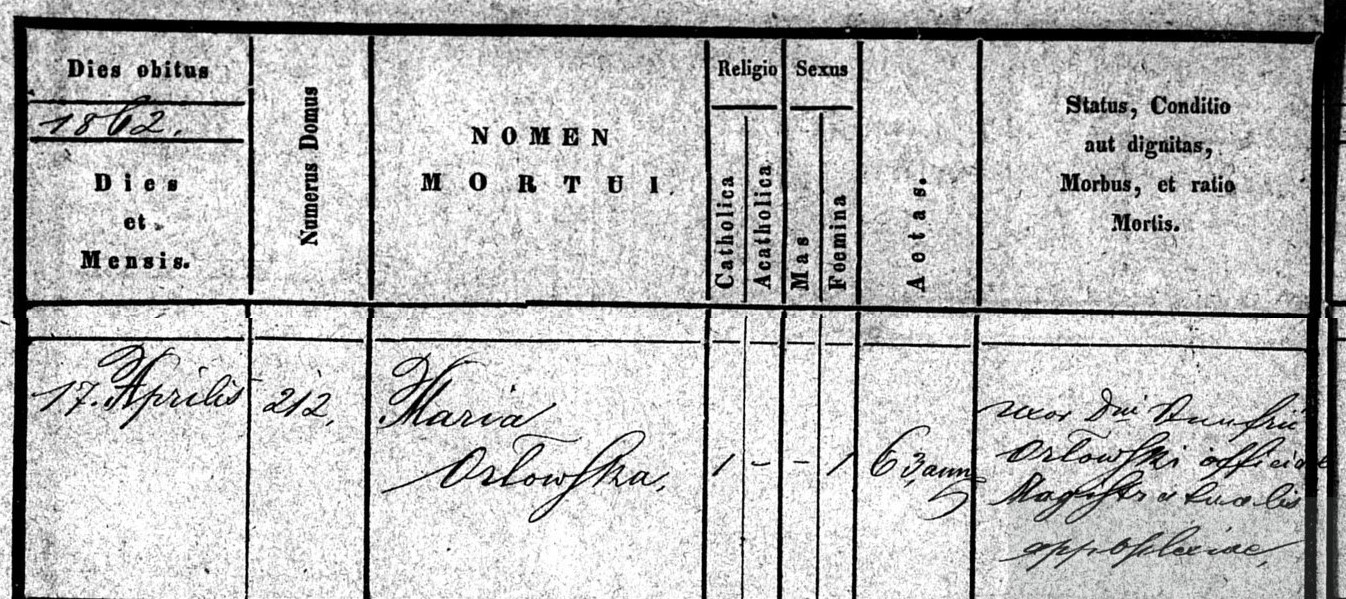 Dies obitus
1862.
Dies
et
Mensis.
Numerus Domus
NOMEN
MORTUI.
Religio
Catholica
Acatholica
Sexus
Mas
Foemina
Aetas.
Status, Conditio
aut dignitas,
Morbus, et ratio
Mortis.
17. Aprilis
212.
Maria
Orłowska,
1 - - 1
63, ann
uxor Dni Onufrii
Orłowski
Magistratualis
appoplexiae,